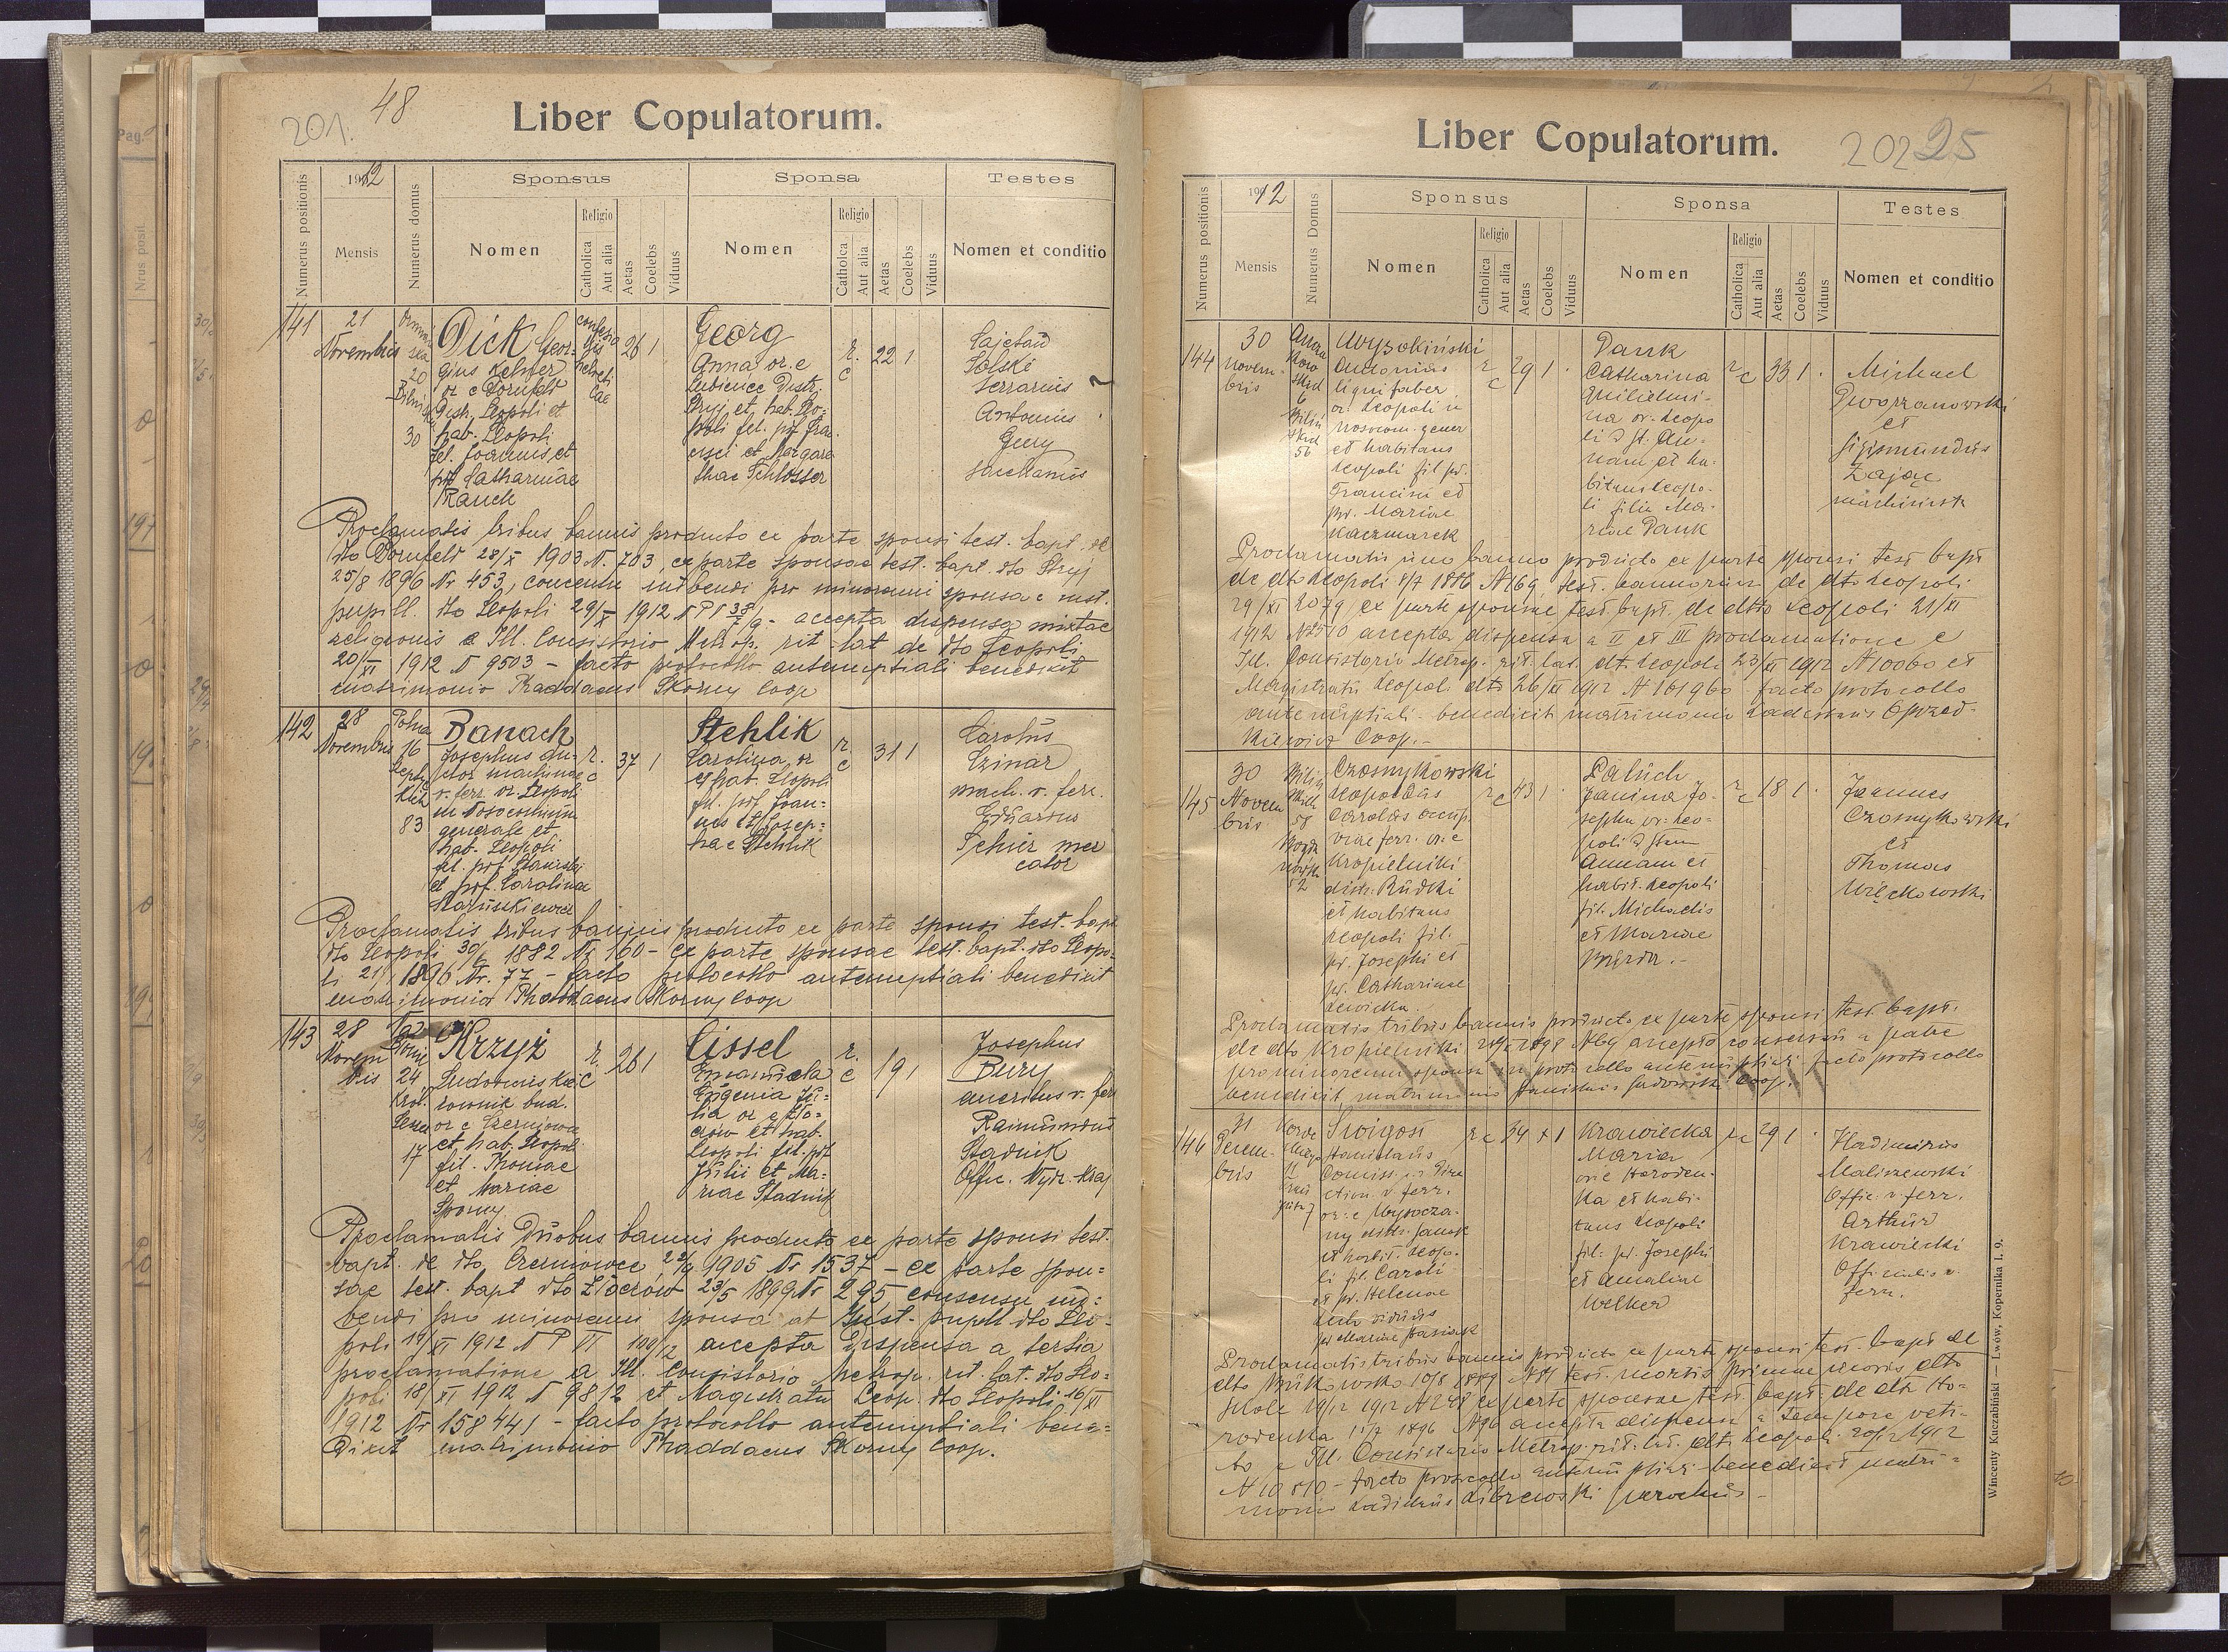 201. 48
Liber Copulatorum.
Numerus positionis
1912
Mensis
Numerus domus
Sponsus
Nomen
Religio
Catholica
Aut alia
Aetas
Coelebs
Viduus
Sponsa
Nomen
Religio
Catholica
Aut alia
Aetas
Coelebs
Viduus
Testes
Nomen et conditio
141
21
Novembris
20
30
Dick Geor-
gius
or e Dornfeld
Distr. Leopoli et
hab. Leopoli
fil. Joannis et
pf Catharinae
Rauch
26 1
Georg
Anna or. e
Distr.
Stryj et hab. Leo-
poli fil. pf Fran
cisci et Margare
thae Schlosser
r.
c
22 1
Cajetan
Solski
Antonius
Proclamatis tribus bannis producto ex parte sponsi test. bapt. de
dto Dornfeld 28/X 1903 N. 703, ex parte sponsae test. bapt. dto Stryj
25/8 1896 Nr 453, consensu nubendi pro minorenni sponsa e inst.
pupill. dto Leopoli 29/X 1912 accepta dispensa mixtae
religionis a Ill. Consistorio Metrop. rit. lat de dto Leopoli
20/XI 1912 N 9503 - facto protocollo antenuptiali benedixit
matrimonio Thaddaeus Skorny Coop
142
28
Novembris
Polna
16
83
Banach
Josephus du-
ctor machinae
v. ferr. or. Leopoli
in Nosocomium
generale et
hab. Leopoli
fil. pf. Stanislai
et pf. Carolina
r.
c
37 1
Stehlik
Carolina or
et hab. Leopoli
fil. pf. Joan-
nis et Josep-
hae Stehlik
r.
c
31 1
Carolus
Czinar
mach. v. ferr.
Eduardus
Schier mer
cator
Proclamatis tribus bannis producto ex parte sponsi test. bapt
dto Leopoli 30/6 1882 Nr 160 - ex parte sponsae test. bapt. dto Leopo-
li 21/1 1896 Nr. 77 - facto protocollo antenuptiali benedixit
matrimonio Thaddaeus Skorny Coop
143
28
Novem
bris
24
17
Krzyż
Ludovicus Kie
rownik bud.
or e Czerniowce
et hab. Leopoli
fil. Thomae
et Mariae
Sporny
r.
c
26 1
Cissel
Emanuela
Eugenia Ju-
lia or e Zło-
czów et hab.
Leopoli fil. pf
Julii et Ma-
riae Stadnik
r.
c
19 1
Josephus
Bury
Raimundus
Stadnik
Offic. Wydz. Kraj
Proclamatis Duobus bannis producto ex parte sponsi test.
bapt. de dto, Czerniowce 22/9 1905 Nr 1537 - ex parte spon-
sae test. bapt dto Złoczów 23/5 1899 Nr 295 consensu nu-
bendi pro minorenni sponsa at Inst. pupill dto Leo-
poli 19/XI 1912 N P VI 109/12 accepta Dispensa a tertia
proclamatione a Ill. Consistorio Metrop. rit. lat. dto Leo-
poli 18/XI 1912 N 9812 et Magistratu Leop. dto Leopoli 16/XI
1912 Nr 158441 - facto protocollo antenuptiali bene-
dixit matrimonio Thaddaeus Skorny Coop.
Liber Copulatorum.
202 25
Numerus positionis
1912
Mensis
Numerus Domus
Sponsus
Nomen
Religio
Catholica
Aut alia
Aetas
Coelebs
Viduus
Sponsa
Nomen
Religio
Catholica
Aut alia
Aetas
Coelebs
Viduus
Testes
Nomen et conditio
144
30
Novem-
bris
6
56
Wysokiński
Antonius
lignifaber
or. Leopoli in
nosocom. gener
et habitans
Leopoli fil pf.
Francisci et
pf. Mariae
Kaczmarek
r
c
29 1
Dank
Catharina
Guilielmi-
na or. Leopo
li d St. An-
nam et ha-
bitans Leopo-
li filia Ma-
riae Dank
r
c
33 1
Michael
Dworzanowski
et
Sigismundus
Zając
machinista
Proclamatis uno banno producto ex parte sponsi test bapt
de dto Leopoli 1/7 1886 N 169, test. bannorum de dto Leopoli
29/XI 2079 ex parte sponsae test bapt. de dtto Leopoli 21/XI
1912 N 2510 accepta dispensa a II et III proclamatione e
Ill. Consistorio Metrop. rit. lat. dt. Leopoli 23/XI 1912 N 10060 et
Magistratu Leopoli dto 26/XI 1912 N 161960 facto protocollo
antenuptiali benedixit matrimonio Ladislaus
Coop.-
145
30
Novem
bris
58
52
Czosnykowski
Leopoldus
Carolus occup.
viae ferr. or. e
Kropielniki
distr. Rudki
et habitans
Leopoli fil.
pf. Josephi et
pf. Catharinae
Lewicka
r
c
43 1
Paluch
Janina Jo-
sepha or. Leo-
poli d Stam
Annam et
habit. Leopoli
fil. Michaelis
et Mariae
r
c
18 1
Joannes
Czosnykowski
et
Thomas
Więckowski
Proclamatis tribus bannis producto ex parte sponsi test. bapt.
de dto Kropielniki 1898 N 69 accepto consensu a patre
pro minorenni sponsa in protocollo antenuptiali facto protocollo
benedixit matrimonio Stanislaus Coop.
146
31
Decem-
bris
11
7
Świgost
Stanislaus
Comiss. in Dire
ction v ferr.
or. e Wysocza-
ny distr. Sanok
et habit. Leopo-
li fil. Caroli
et pf. Helenae
viduus
pf Mariae Stasiak
r c 34 + 1
Krawiecka
Maria
or. e Horoden-
ka et habi-
tans Leopoli
fil. pf. Josephi
et Amaliae
Welker
r c 29 1
Vladimirus
Maliszewski
Offic. v. ferr.
Arthur
Krawiecki
Officialis v.
ferr.
Proclamatis tribus bannis producto ex parte sponsi test. bapt de
dto 10/8 1887 N 81 test. mortis primae uxoris dto
Skole 19/12 1912 N 248 ex parte sponsae test. bapt. de dto Ho-
rodenka 15/7 1896 N 96 accepta dispensa a tempore veti-
to a Ill. Consistorio Metrop. rit. lat. dto Leopoli 20/12 1912
N 10810 - facto protocollo antenuptiali benedixit matri-
monio Ladislaus Librewski parochus -
Wincenty Kuczabiński — Lwów, Kopernika l. 9.
Pag.
Nrus posit.